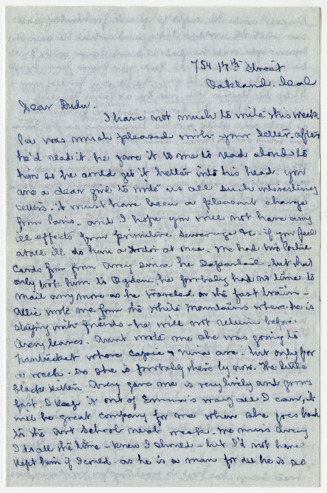 754 17th Street
Oakland. Cal
Dear Dudu.
I have not much to write this week
Pa was much pleased with your letter. after
he'd read it, he gave it to me to read aloud to
him so he could get it better into his head. you
are a dear girl to write us all such interesting
letters. it must have been a pleasant change
from Paris. and I hope you will not have any
ill effects from primitive sewerage &c. if you feel
at all ill do have a doctor at once. We had two
cards from Avery since he departed. but that
only took him to Ogden. he probably had no time to
mail any more as he traveled on the fast train.
Allie wrote me from the White Mountains where he is
staying with friends. he will not return before
Avery leaves. Aunt wrote me she was going to
Nantucket where and Nina are. but only for
a week. so she is probably there by now. The little
black kitten Avery gave me is very lively and grows
fast. I keep it out of way all I can, it
will be great company for me when she goes back
to the Art School next week. We miss Avery
all the time. knew I should. but I'd not have
kept him if I could. as he is a man for all he is so